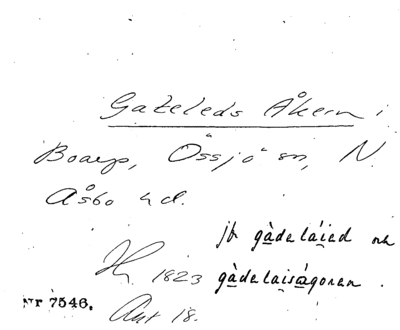 Gateleds Åkern i
Boarp, Össjö sn, N.
Åsbo hd.
jfr gàdeláied och
H. 1823 gàdelaiságoren.
Nr 7546. Akt 18.